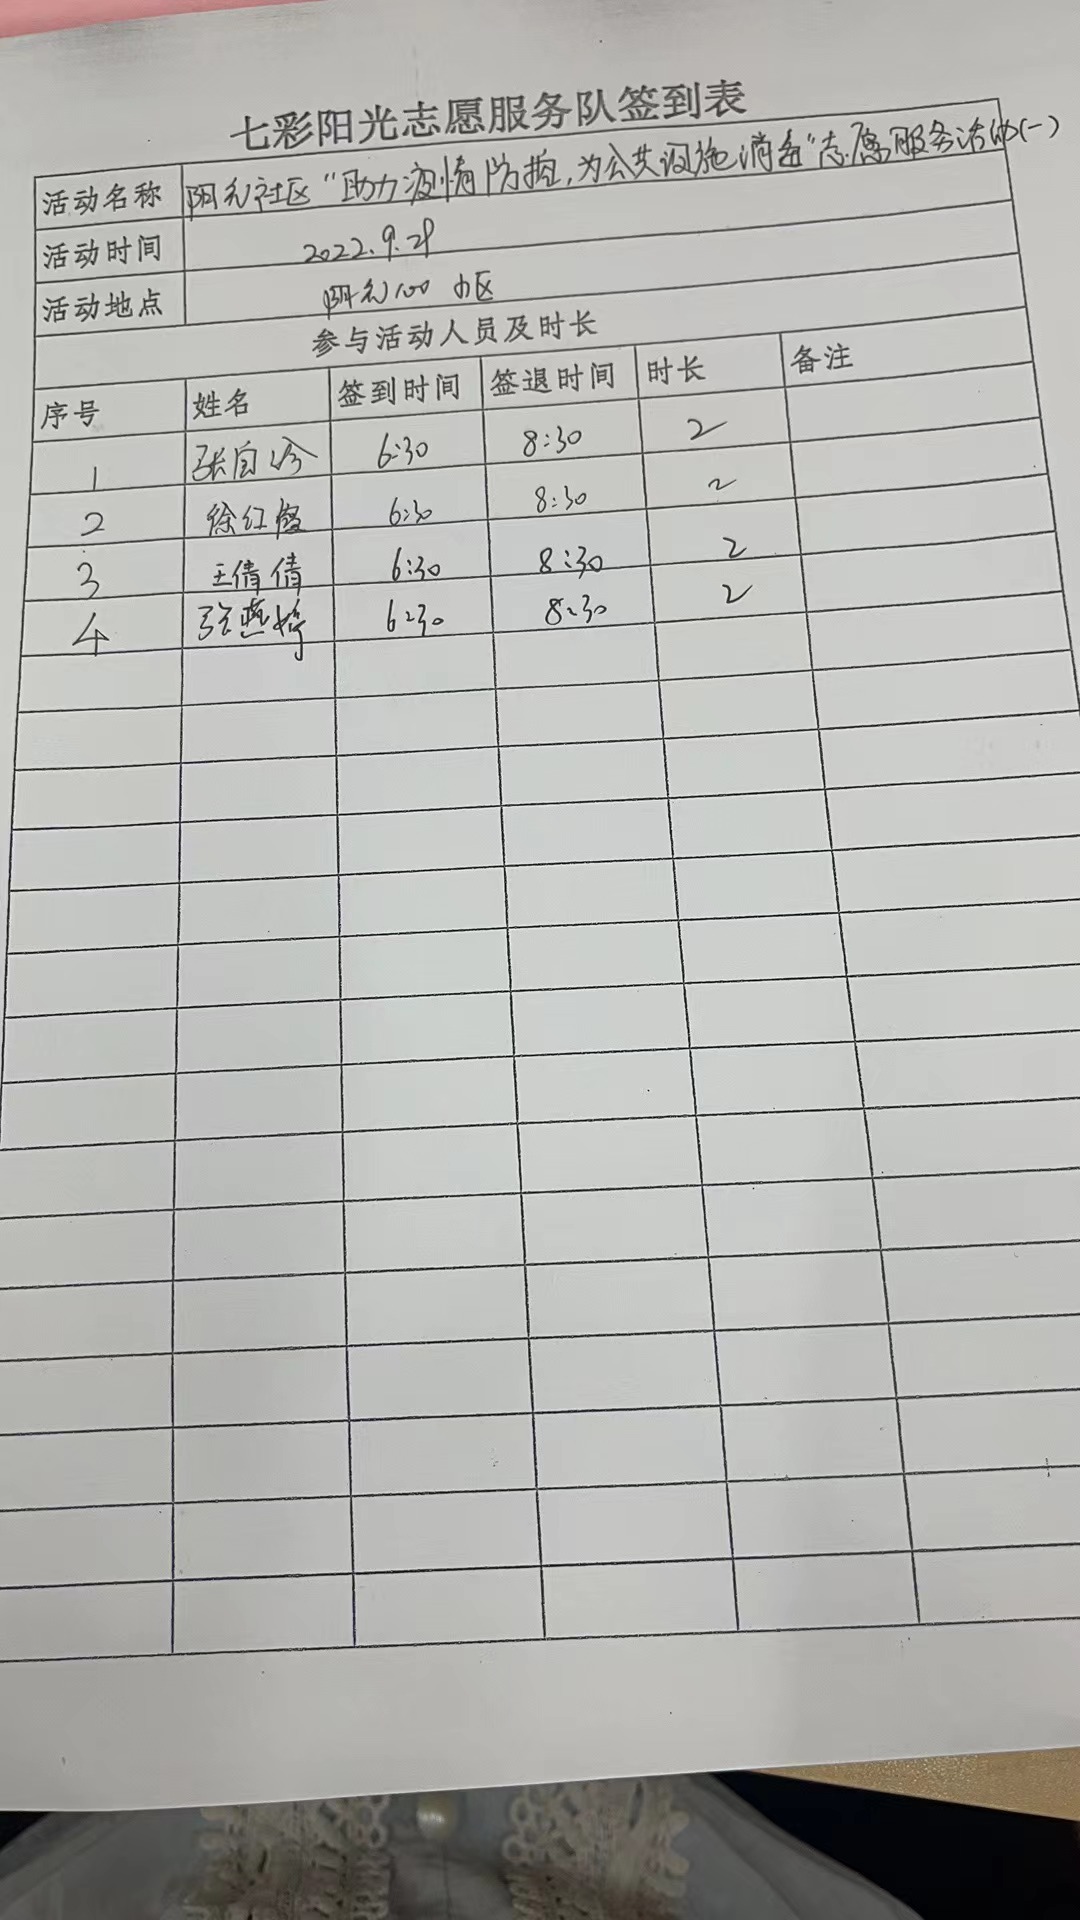 七彩阳光志愿服务队签到表
活动名称 阳光社区“助力疫情防控,为公共设施消毒”志愿服务活动(一)
活动时间 2022.9.29
活动地点 阳光100 小区
参与活动人员及时长
序号 姓名 签到时间 签退时间 时长 备注
1 张自 6:30 8:30 2
2 徐红霞 6:30 8:30 2
3 王倩倩 6:30 8:30 2
4 张燕婷 6:30 8:30 2